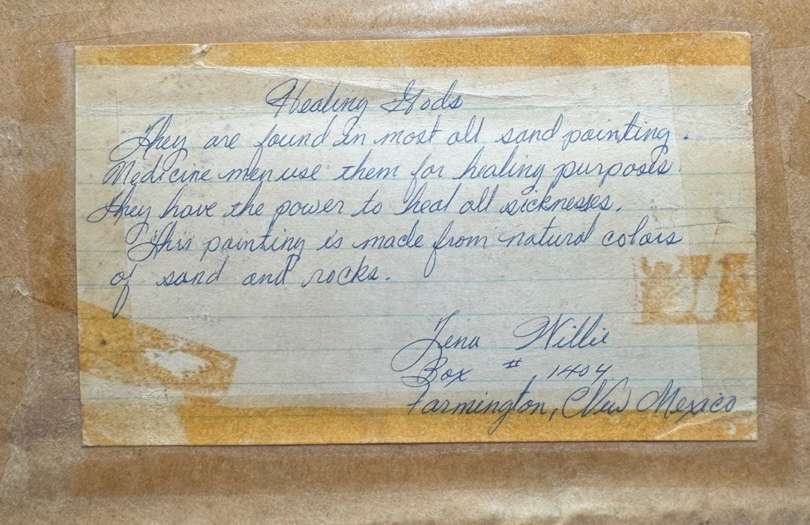 Healing Gods
They are found in most all sand painting.
Medicine men use them for healing purposes.
They have the power to heal all sicknesses.
This painting is made from natural colors
of sand and rocks.
Lena Willie
Box # 1404
Farmington, New Mexico